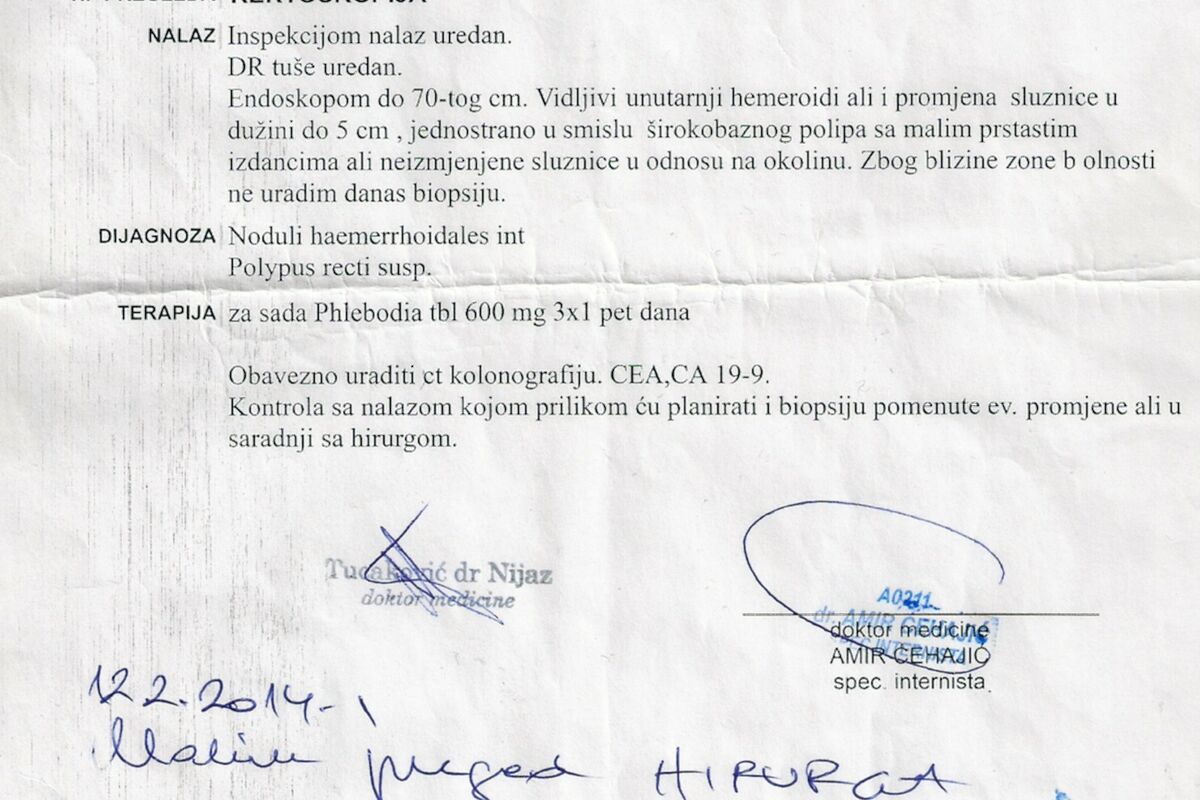 REKTOSKOPIJA
NALAZ Inspekcijom nalaz uredan.
DR tuše uredan.
Endoskopom do 70-tog cm. Vidljivi unutarnji hemeroidi ali i promjena sluznice u
dužini do 5 cm , jednostrano u smislu širokobaznog polipa sa malim prstastim
izdancima ali neizmjenjene sluznice u odnosu na okolinu. Zbog blizine zone b olnosti
ne uradim danas biopsiju.
DIJAGNOZA Noduli haemerrhoidales int
Polypus recti susp.
TERAPIJA za sada Phlebodia tbl 600 mg 3x1 pet dana
Obavezno uraditi ct kolonografiju. CEA,CA 19-9.
Kontrola sa nalazom kojom prilikom ću planirati i biopsiju pomenute ev. promjene ali u
saradnji sa hirurgom.
Tucaković dr Nijaz
doktor medicine
A0211
dr. AMIR ČEHAJIĆ
SPEC INTERNISTA
doktor medicine
AMIR ČEHAJIĆ
spec. internista
12.2.2014-
Molim pregled HIRURGA